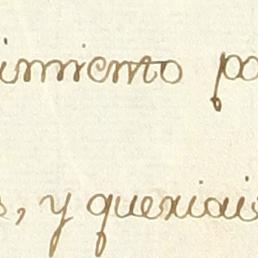 imiento po
s, y queriais